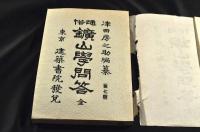 津田房之助編纂
第七冊
通俗
鑛山學問答 全
東京 建築書院發兌